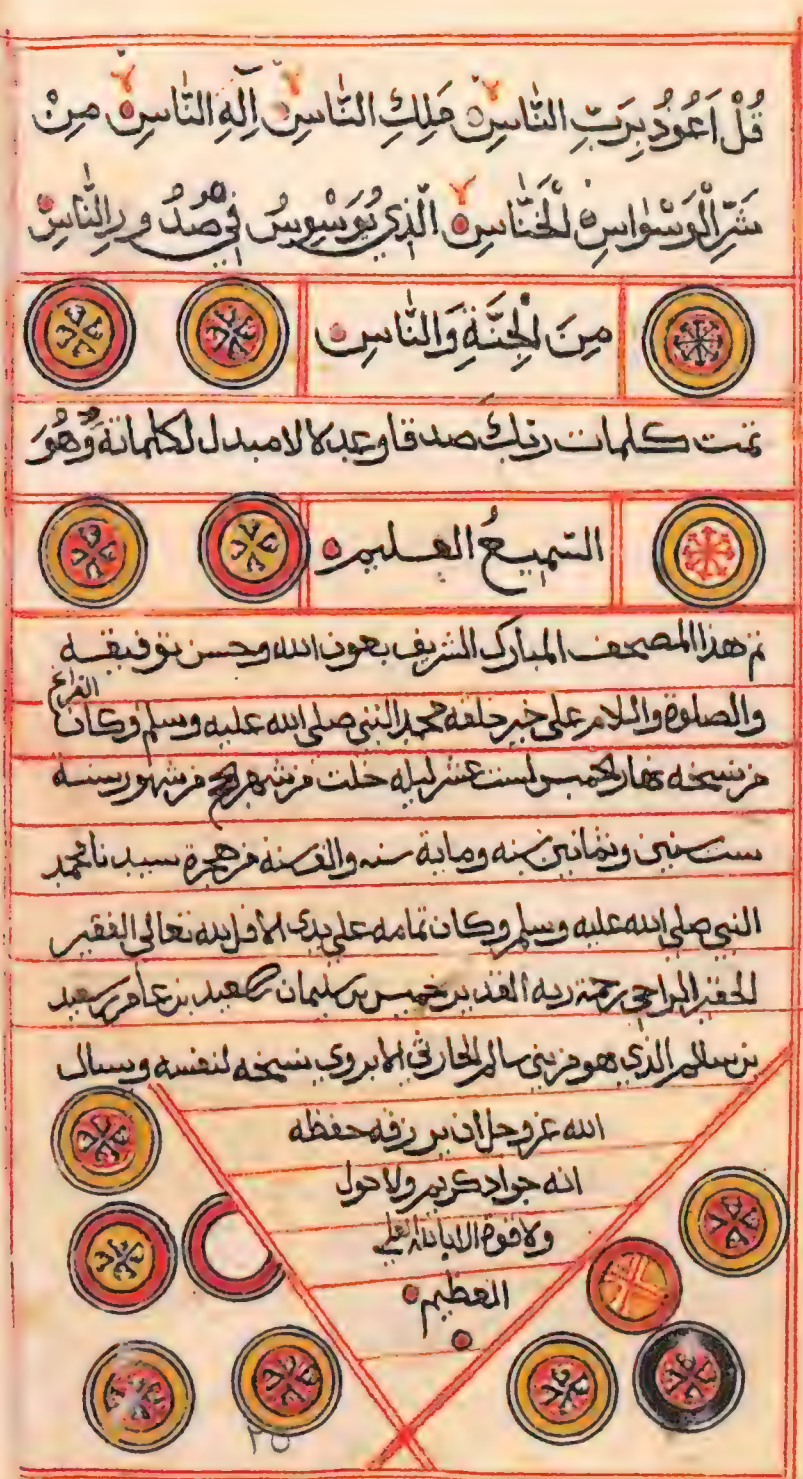 قُلْ اَعُوذُ بِرَبِّ النَّاسِ مَلِكِ النَّاسِ اِلَهِ النَّاسِ مِنْ
شَرِّ الْوَسْوَاسِ الْخَنَّاسِ الَّذِي يُوَسْوِسُ فِي صُدُورِ النَّاسِ
مِنَ الْجِنَّةِ وَالنَّاسِ
تمت كلمات ربك صدقا وعدلا لا مبدل لكلماته وَهُوَ
السَّمِيعُ العليم
تم هذا المصحف المبارك الشريف بعون الله وحسن توفيقه
والصلوة والسلام على خير خلقه محمد النبي صلى الله عليه وسلم وكان الفراغ
من نسخه نهار الخميس لست عشر ليله خلت من شهر الحج من شهور سنة
ست سنين وثمانين سنه وماية سنه والف سنه من هجرة سيدنا محمد
النبي صلى الله عليه وسلم وكان تمامه على يدي الاقل لله تعالى الفقير
الحقير الراجي رحمة ربه القدير خميس بن سليمان بن سعيد بن عامر بن سعيد
بن سالم الذي هو من بني سالم الحارثي الابروي نسخه لنفسه ويسال
الله عز وجل ان يرزقه حفظه
انه جواد كريم ولا حول
ولا قوة الا بالله العلي
العظيم